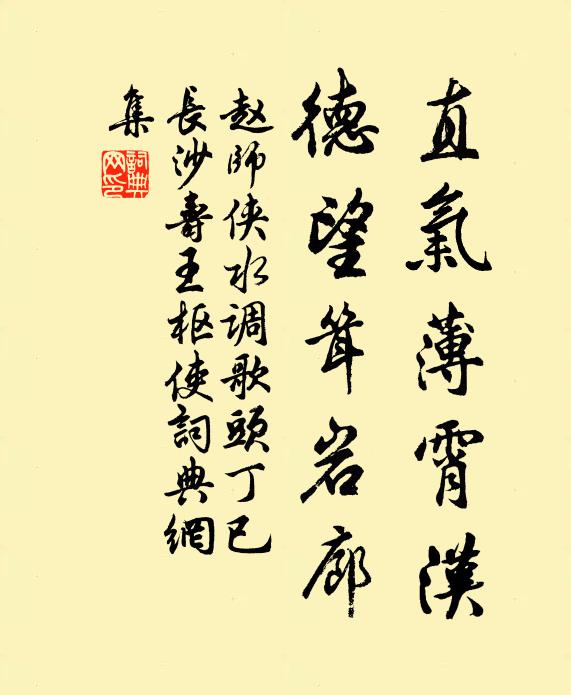 直氣薄霄漢
德望耸岩廊
赵師侠水调歌頭丁巳
長沙壽王枢使詞典網
集
詞典網印